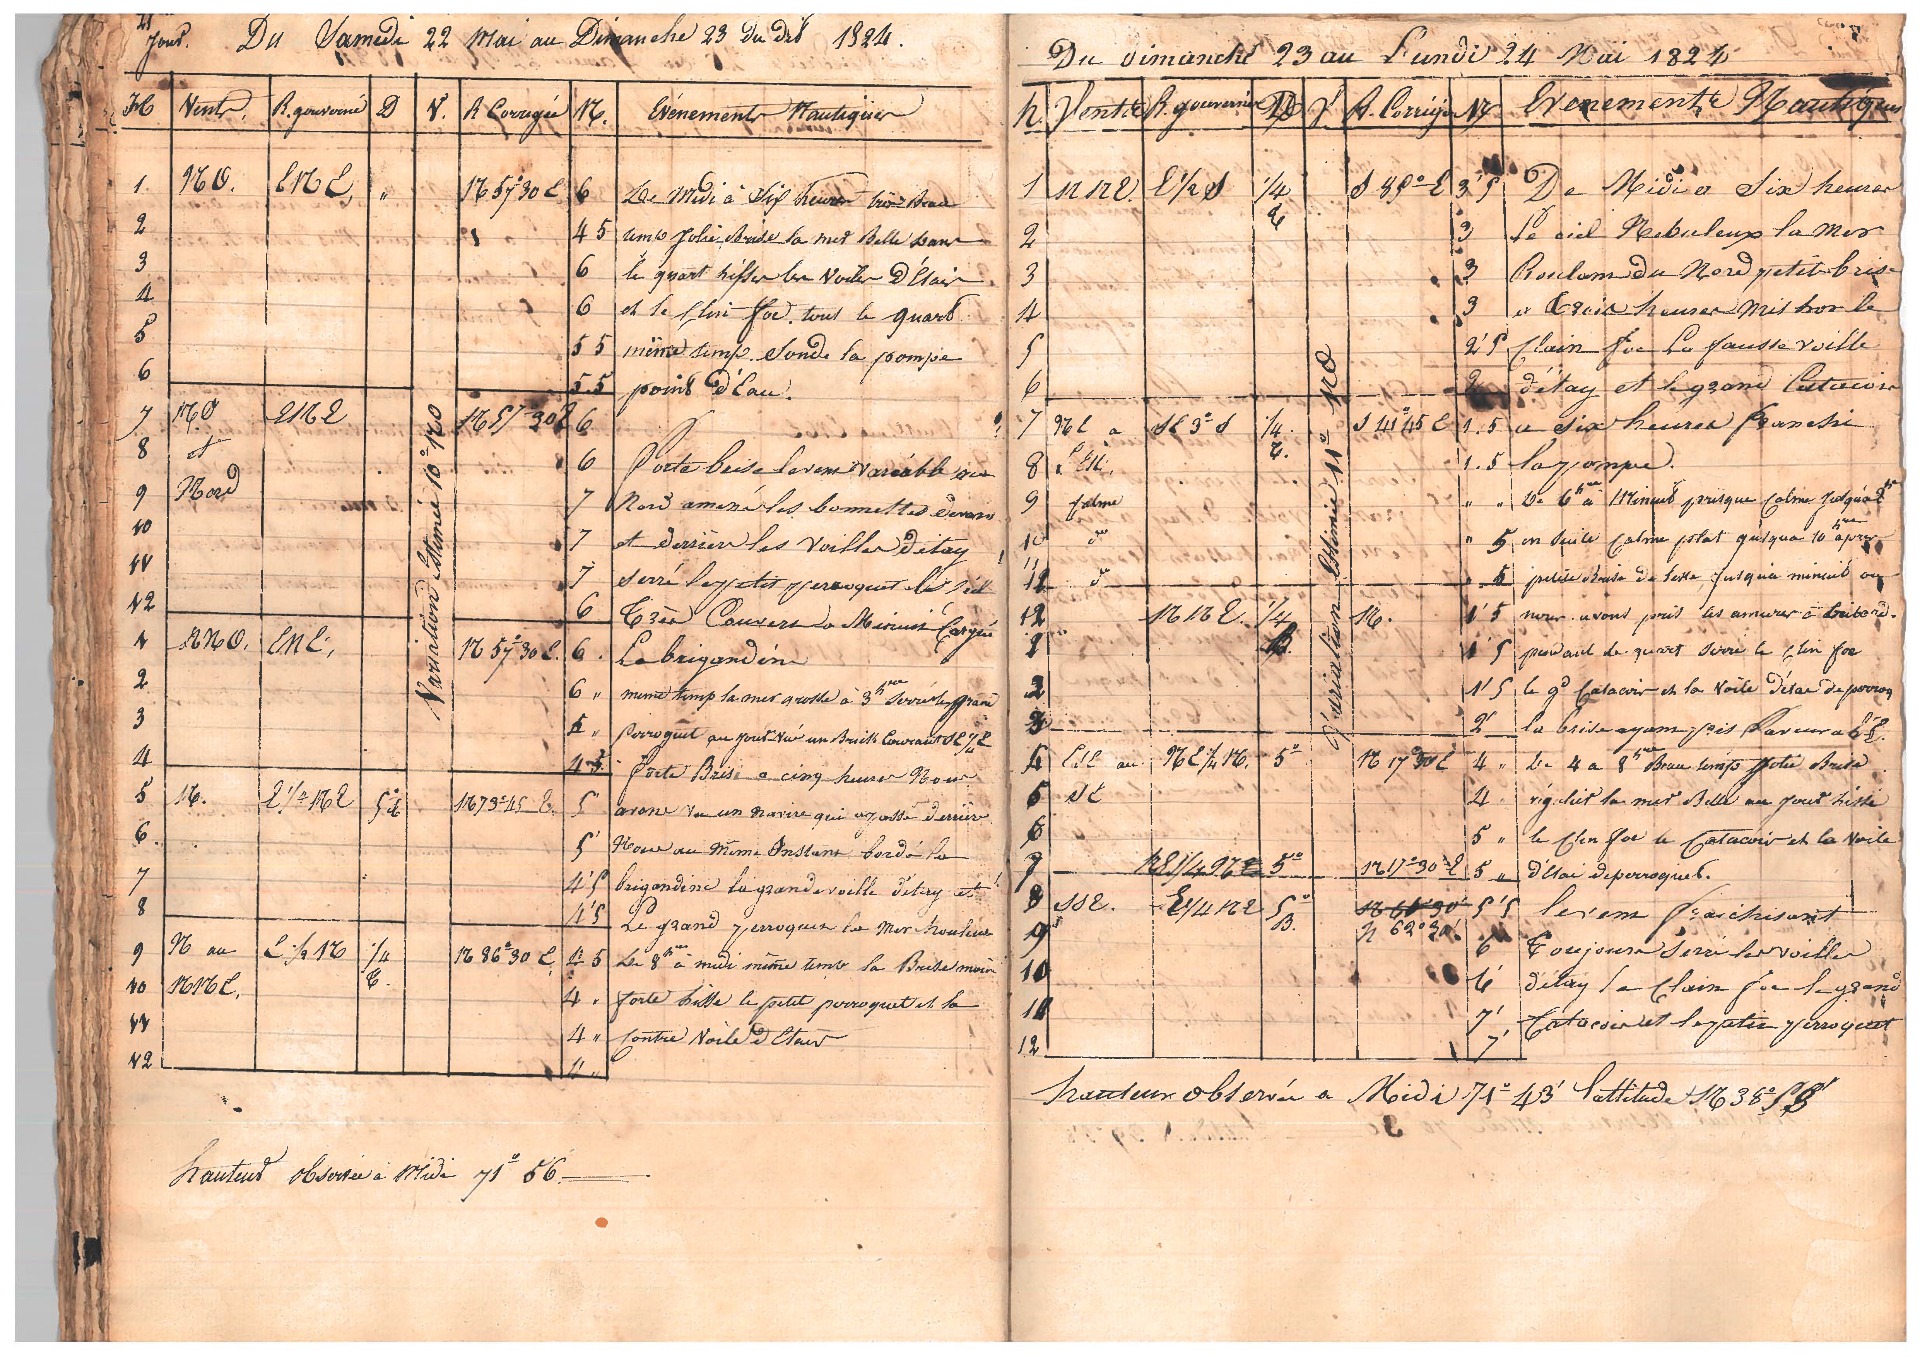 Jour. Du Samedi 22 Mai au Dimanche 23 du dit 1824.
H Vents. R. gouverné D V. R Corrigée N. Evénements Nautiques
1 NO. ENE, " N 57° 30 E 6 De Midi à Six heures très Beau
2 4 5 temps Jolie Brise la mer Belle dans
3 6 le quart hisser les Voiles D'Etais
4 6 et le Clin foc. tout le quart
5 5 5 même temp. Sonde la pompe
6 5 5 point d'Eau.
7 NO ENE N 57° 30 E 6
8 et 6 forte brise le vent variable au
9 Nord 7 Nord amené les bonnettes devans
10 7 et derrière les voilles d'étay
11 7 serré le petit perroquet le Siel
12 6 Très Couvers a Minuit Cargué
Variation Estimée 10° NO
1 NNO. ENE, N 57° 30 E. 6 La brigandine
2 6 " meme temp la mer grosse à 3 hres Serré le grand
3 5 " perroquet au jour vu un Brick Courant SE 1/4 E
4 4 5 forte Brise a cinq heures Nous
5 N. E 1/4 NE 5° t N 73° 45 E. 5' avons vu un navire qui a passé derrière
6 5' Nous au même Instans bordé la
7 4' 5 brigandine la grande voille d'étay et
8 4' 5 Le grand perroquet la Mer houleuse
9 N au E 1/2 N 1/4 N 86° 30 E, 4 5 De 8 hres à midi même temps la Brise moins
10 NNE, T. 4 " forte hisse le petit perroquet et la
11 4 " contre Voile d'Etais
12 4 "
hauteur observée à Midi 71° 56
Du dimanche 23 au Lundi 24 Mai 1824
h. Vents R. gouverné D V R. Corrigé N Evenements Nautiques
1 NNE. E 1/2 S 1/4 T S 89° E 3' 5 De Midi a Six heures
2 3 Le ciel Nebuleux la Mer
3 3 Roulans du Nord petite brise
4 3 a trois heures Mis hor le
5 2' 5 Clain foc La fausse voille
6 2 d'étay et le grand Catacoir
7 NE a SE 3° S 1/4 T. S 41° 45 E 1. 5 a six heures franchi
8 l'EN, 1. 5 la pompe.
9 Calme " " De 6 hres à Minuit presque Calme jusqu'a 8 hre
10 do " 5 en suite Calme plat jusqua 10 hres apres
11 12 do " 5 petite brise de l'Este, jusqu'a minuit ou
12 NNE. 1/4 B. N. 1' 5 nous avons pris les amures à tribord.
1 1' 5 pendant le quart serré le Clin foc
2 1' 5 le gd Catacoir et la Voile d'étai de perroq
3 2' la brise ayans pris Faveur a l'E.
Variation Estimée 11° NO
4 ESE au NE 1/4 N. 5° N 17° 30 E 4 " De 4 a 8 hres Beau temps Jolie Brise
5 SE 4 " régulier la mer Belle au jour hissé
6 5 " le Clin foc le Catacoir et la Voile
7 NE 1/4 N 5° N 17° 30 E 5 " d'étai de perroquet.
8 SSE. E 1/4 NE 5° B. N 61° 30' 5' 5 le vens fraichisant
9 N 62° 30' 6 Toujours Serré les voilles
10 6' d'étay le Clain foc le grand
11 7' Catacoir et le petit perroquet
12 7'
hauteur observée a Midi 71° 43' Lattitude N 38° 58'